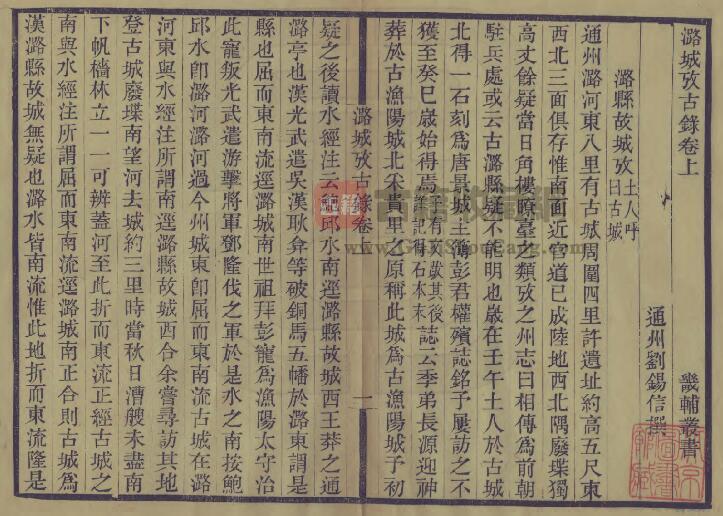 潞城攷古錄卷上
畿輔叢書
通州劉錫信撰
潞縣故城攷土人呼曰古城
通州潞河東八里有古城周圍四里許遺址約高五尺東
西北三面俱存惟南面近官道已成陸地西北隅廢堞獨
高丈餘疑當日角樓瞭臺之類攷之州志曰相傳為前朝
駐兵處或云古潞縣疑不能明也歲在壬午土人於古城
北得一石刻為唐景城主簿彭君權殯誌銘予屢訪之不
獲至癸巳歲始得焉誌云季弟長源迎神
葬於古漁陽城北采貴里之原稱此城為古漁陽城予初
潞城攷古錄卷上
一
疑之後讀水經注云鮑邱水南逕潞縣故城西王莽之通
潞亭也漢光武遣吳漢耿弇等破銅馬五幡於潞東謂是
縣也屈而東南流逕潞城南世祖拜彭寵為漁陽太守治
此寵叛光武遣游擊將軍鄧隆伐之軍於是水之南按鮑
邱水卽潞河潞河過今州城東卽屈而東南流古城在潞
河東與水經注所謂南逕潞縣故城西合余嘗尋訪其地
登古城廢堞南望河去城約三里時當秋日漕艘未盡南
下帆檣林立一一可辨蓋河至此折而東流正經古城之
南與水經注所謂屈而東南流逕潞城南正合則古城為
漢潞縣故城無疑也潞水皆南流惟此地折而東流隆是